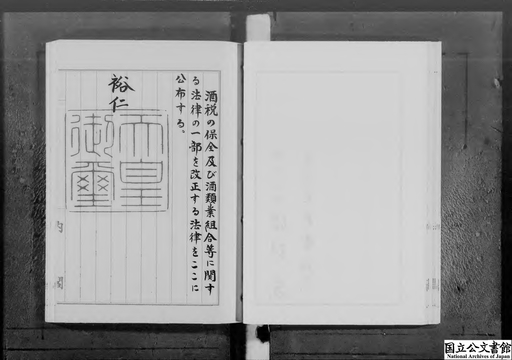 酒税の保全及び酒類業組合等に関す
る法律の一部を改正する法律をここに
公布する。
裕仁
天皇
御璽
内閣
国立公文書館
National Archives of Japan